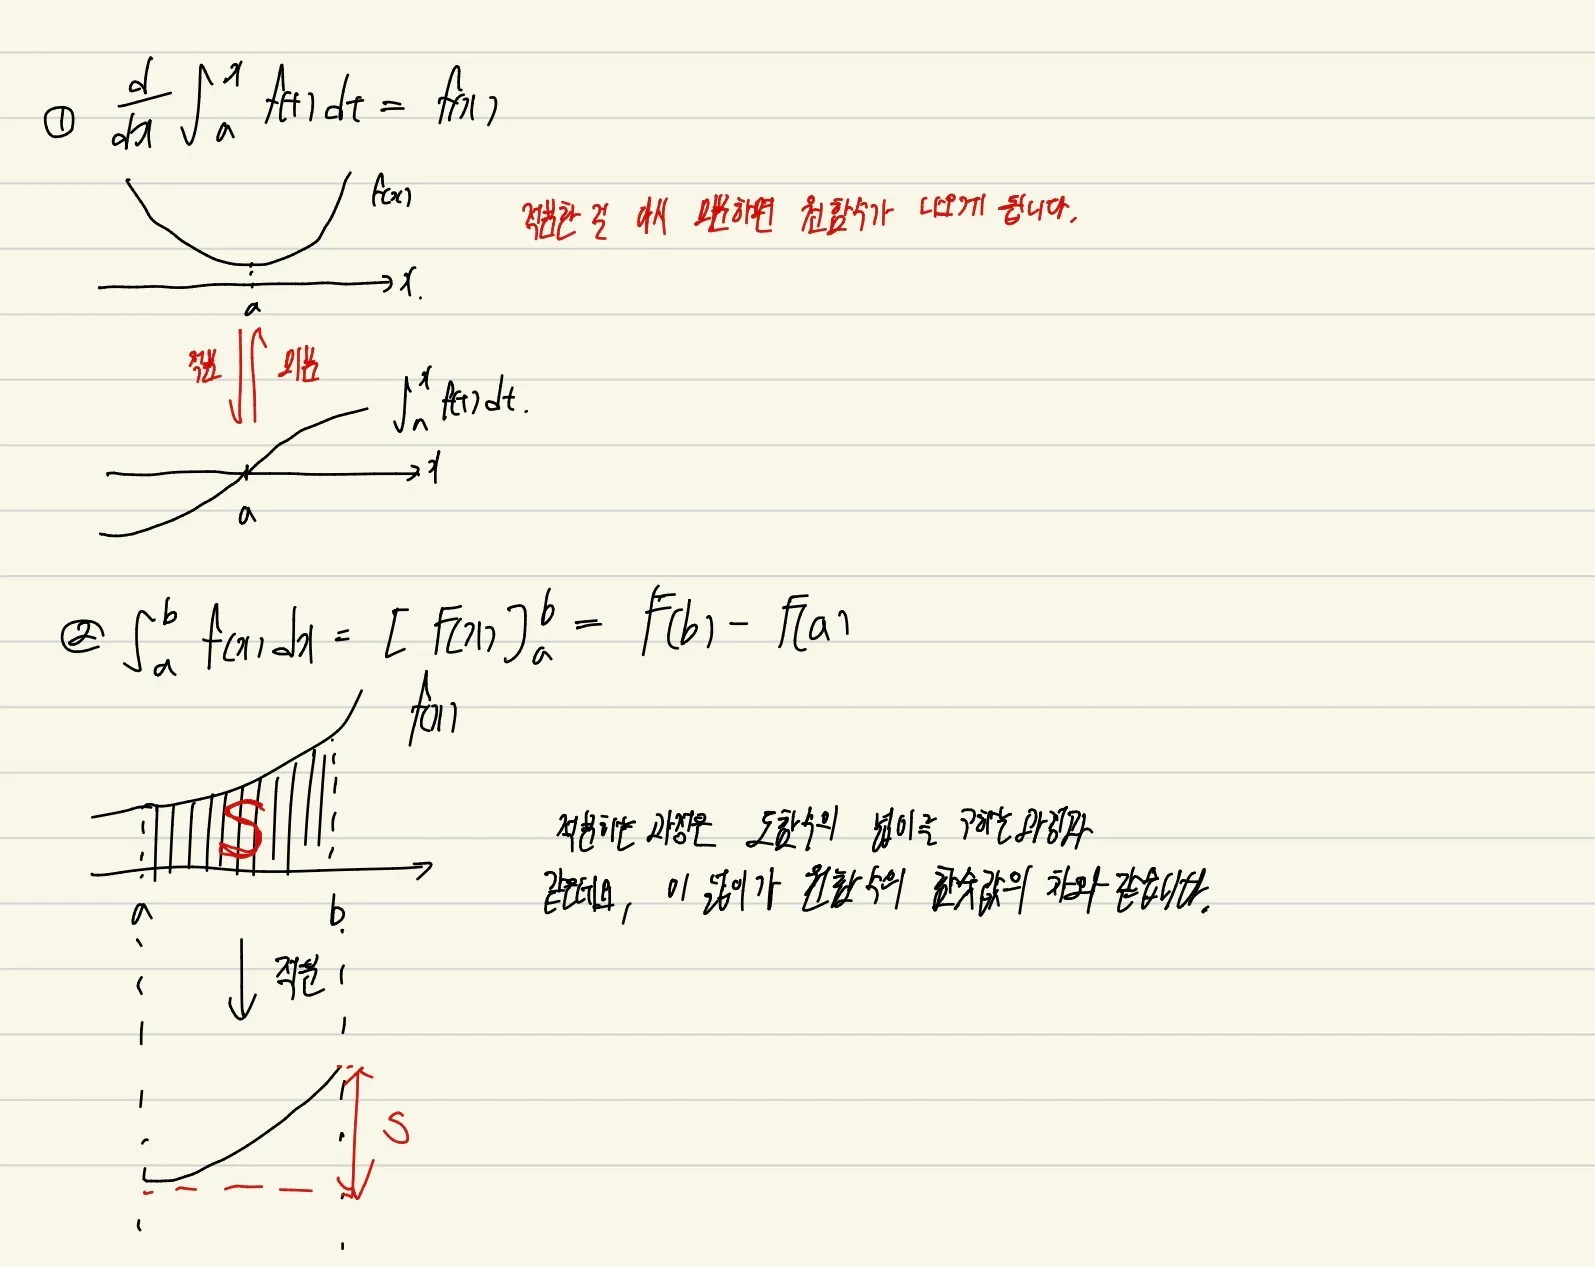 ① d/dx ∫_a^x f(t) dt = f(x)
f(x)
적분한 걸 다시 미분하면 원함수가 나오게 됩니다.
x.
a
적분 미분
∫_a^x f(t) dt.
x
a
② ∫_a^b f(x) dx = [ F(x) ]_a^b = F(b) - F(a)
f(x)
S
적분하는 과정은 도함수의 넓이를 구하는 과정과
같은데요, 이 넓이가 원함수의 함숫값의 차와 같습니다.
a b
적분
S